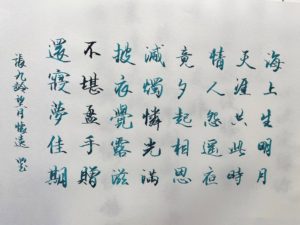 海上生明月
天涯共此時
情人怨遥夜
竟夕起相思
滅燭憐光滿
披衣覺露滋
不堪盈手贈
還寢夢佳期
張九齡望月懷遠